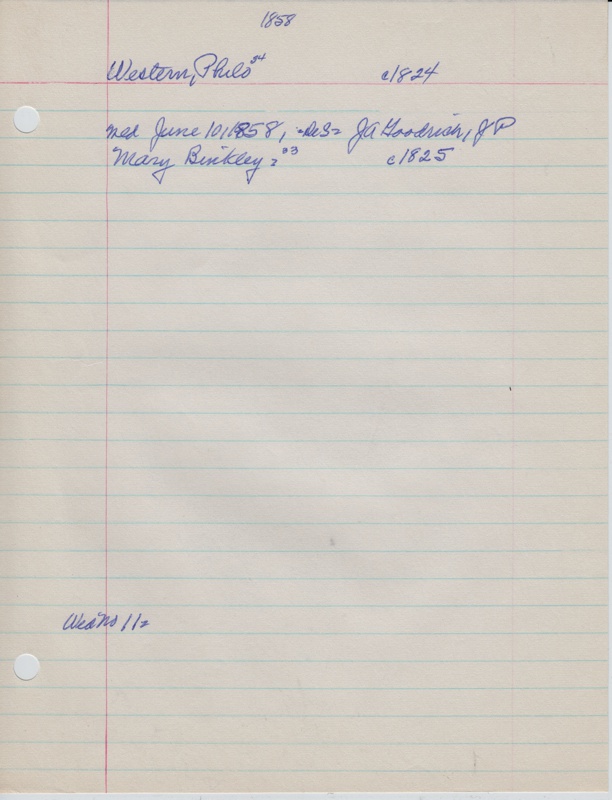 1858
Western, Philo 34 c1824
Med June 10, 1858, J A Goodrich, J P
Mary Binkley, 33 c1825